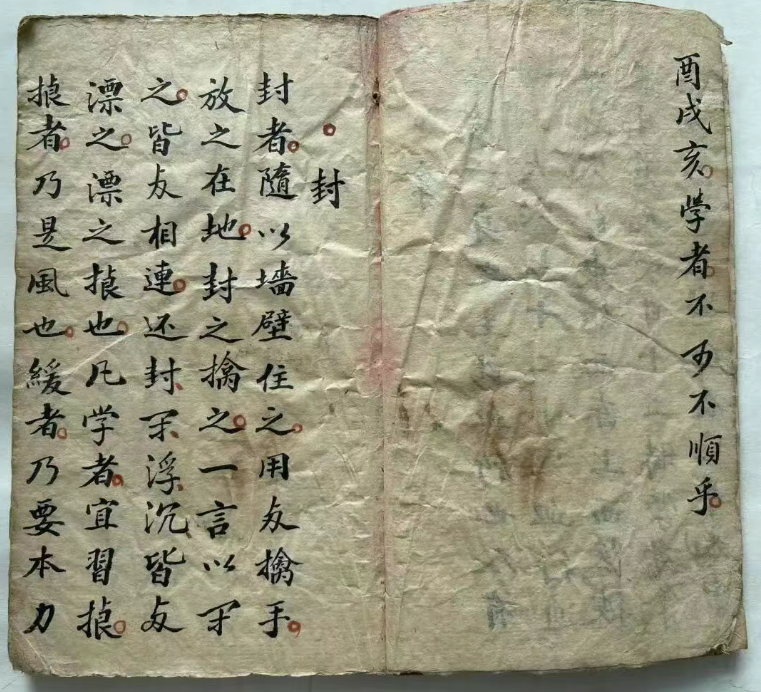 酉戌亥学者不可不順乎
封
封者隨以墙壁住之用擒手
放之在地封之擒之一言以
之皆相連还封浮沉皆
漂之漂之掁也凡学者宜習掁
掁者乃是風也緩者乃要本力